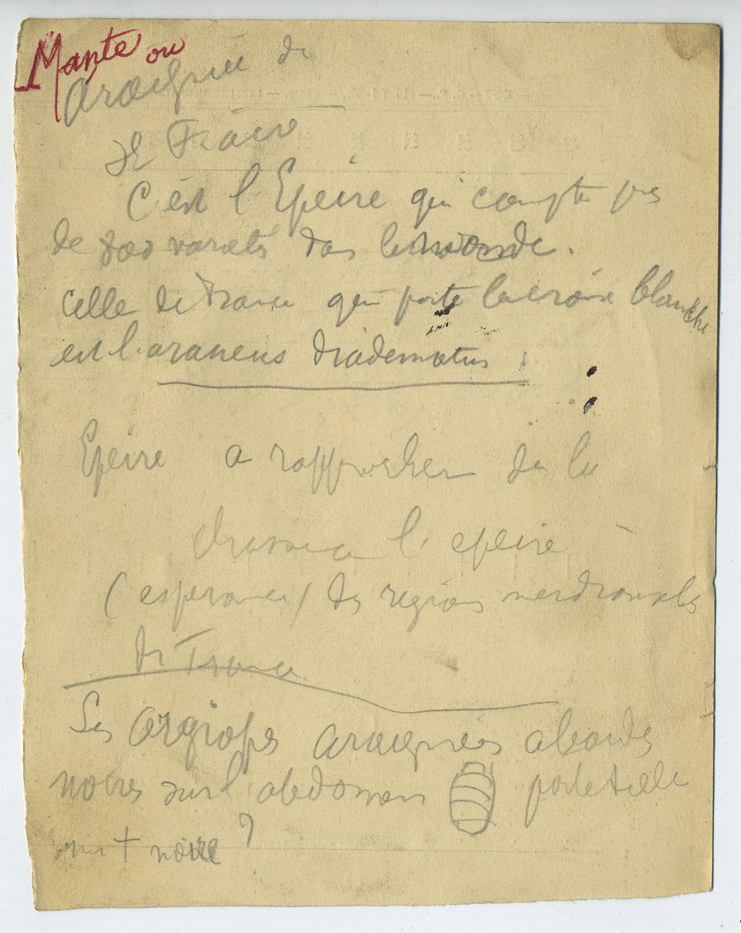 Mante ou
araignée de
de France
C'est l'Epeire qui compte pres
de varietés dans le monde.
celle de France qui porte la croix blanche
est l'araneus diadematus
Epeire a rapprocher de la
l'epeire
(esperance) des regions meridionales
de France
Les Argiopes araignées a bandes
noires sur l'abdomen porte telle
une + noire ?